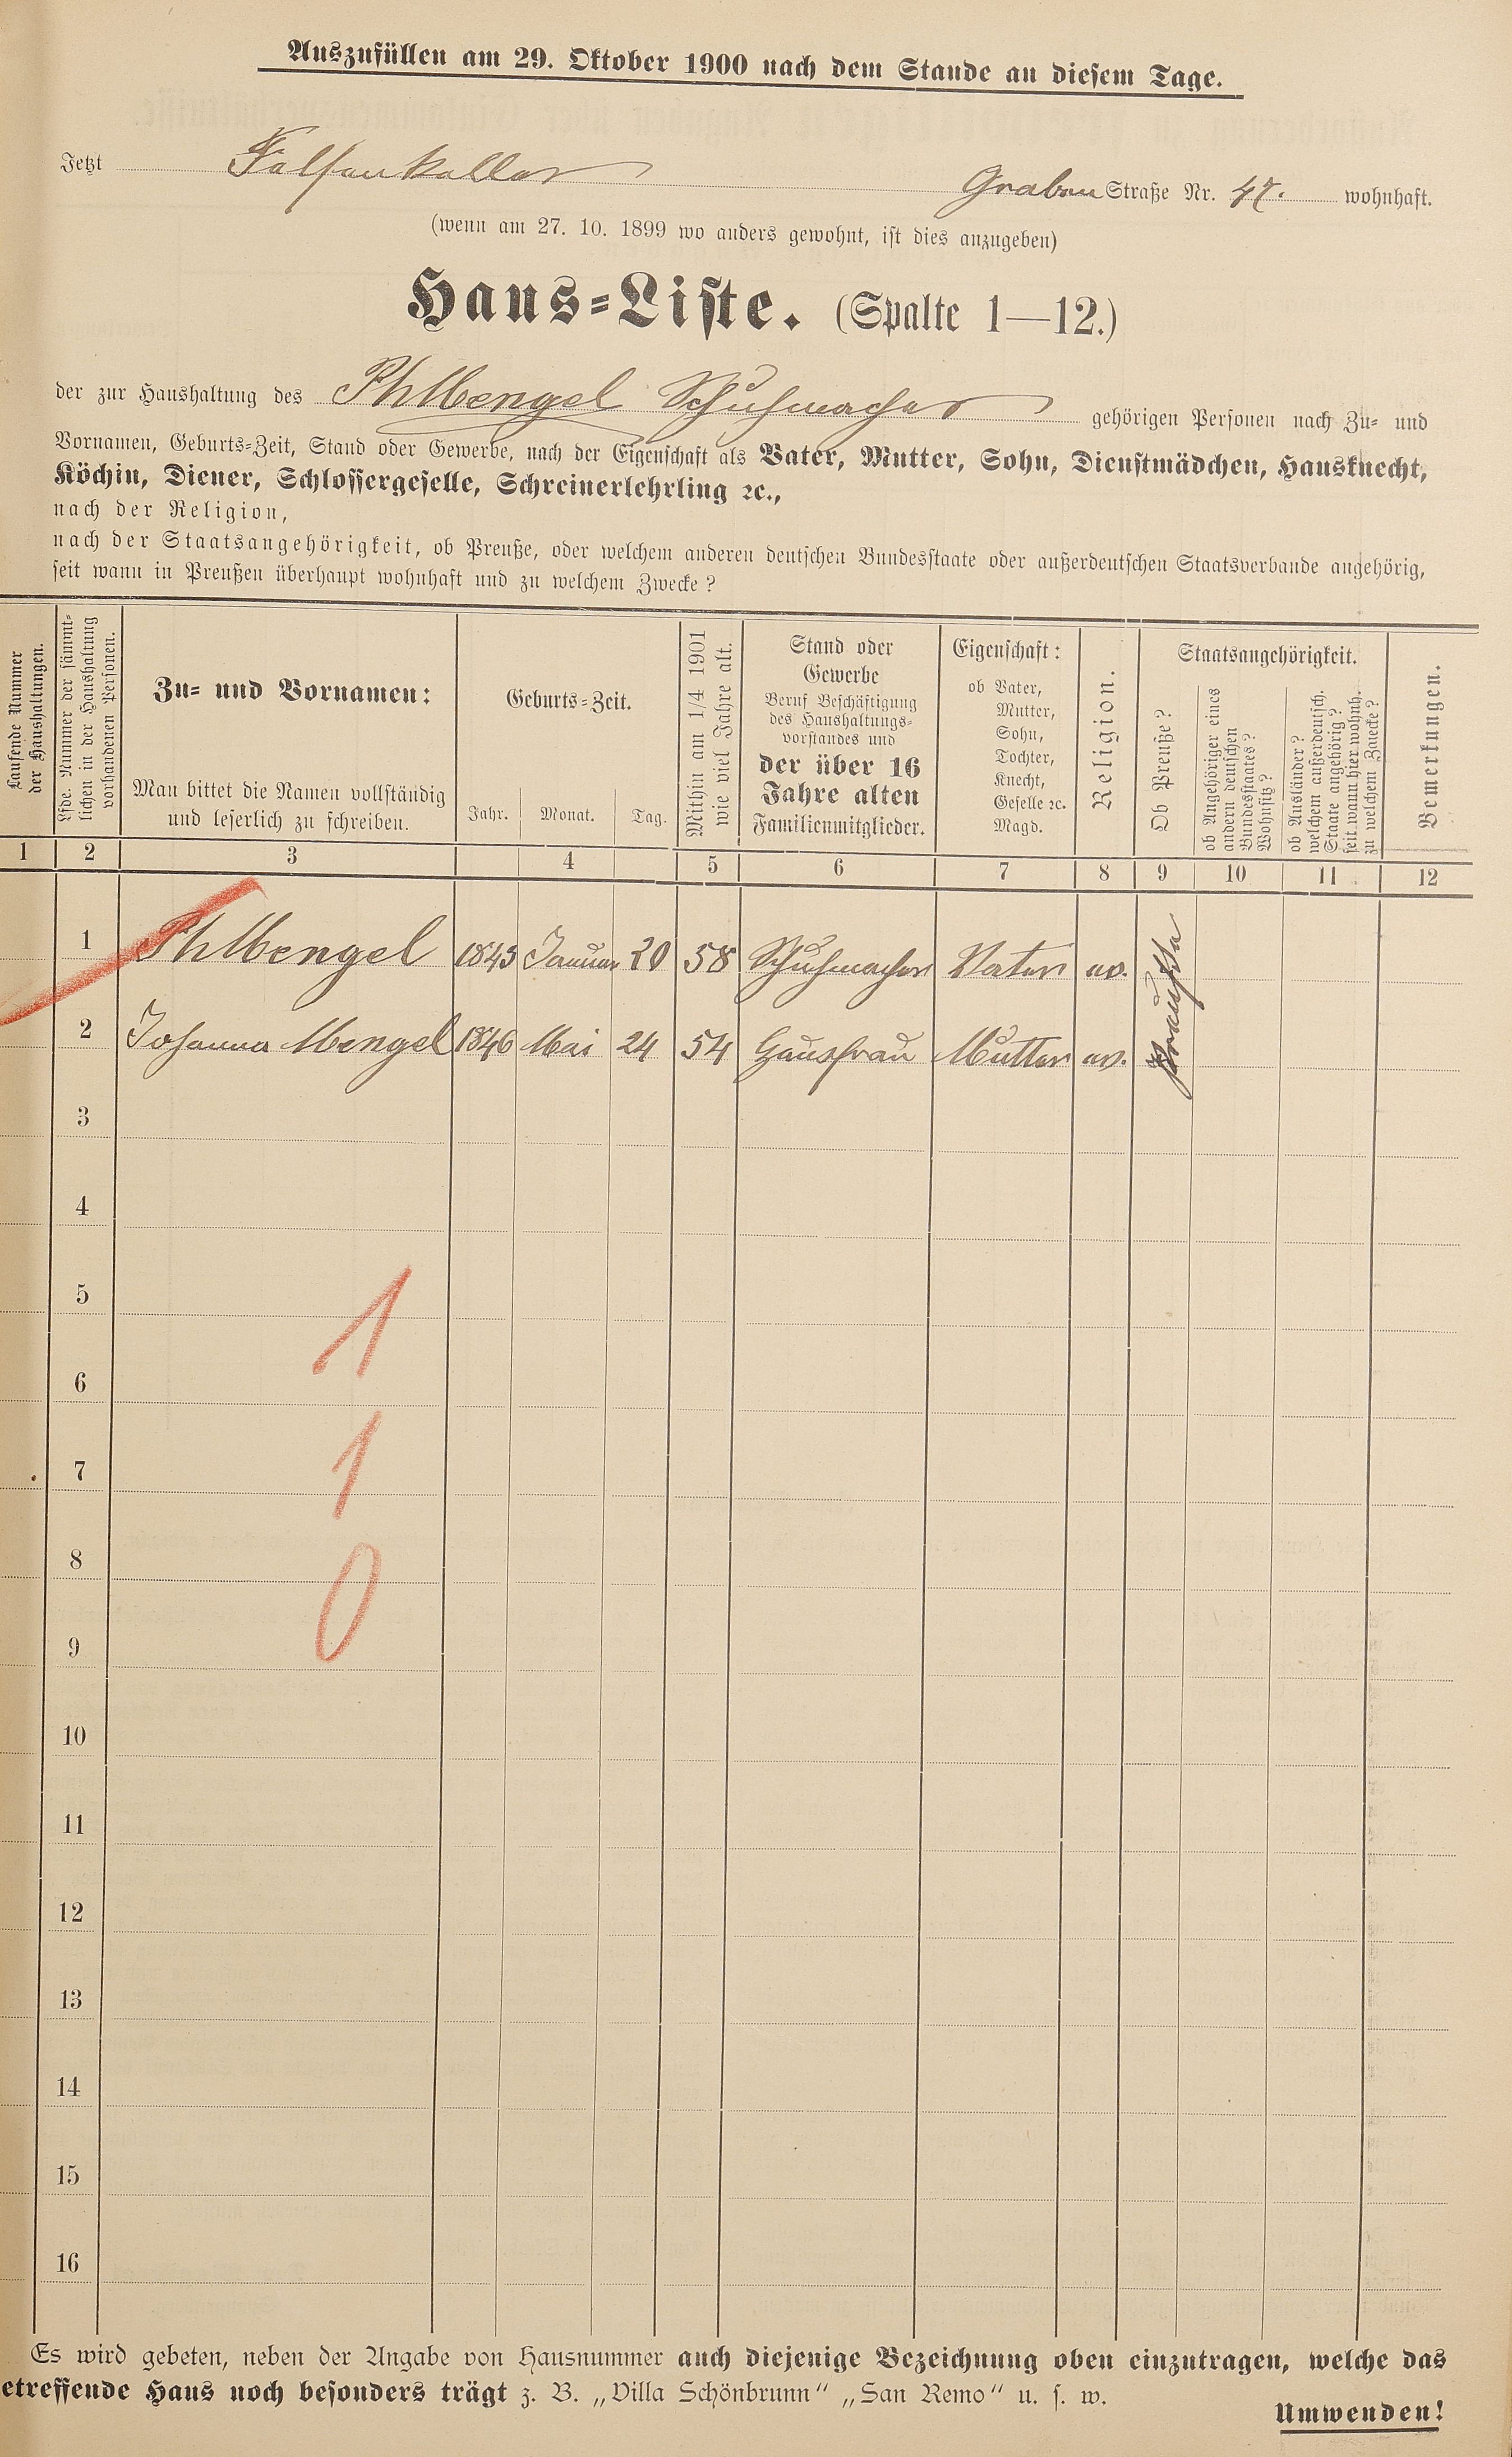 Auszufüllen am 29. Oktober 1900 nach dem Stande an diesem Tage.
Jetzt Felsenkeller Graben Straße Nr. 47. wohnhaft.
(wenn am 27. 10. 1899 wo anders gewohnt, ist dies anzugeben)
Haus-Liste. (Spalte 1—12.)
der zur Haushaltung des Ph Mengel Schuhmacher gehörigen Personen nach Zu- und
Vornamen, Geburts-Zeit, Stand oder Gewerbe, nach der Eigenschaft als Vater, Mutter, Sohn, Dienstmädchen, Hausknecht,
Köchin, Diener, Schlossergeselle, Schreinerlehrling ꝛc.,
nach der Religion,
nach der Staatsangehörigkeit, ob Preuße, oder welchem anderen deutschen Bundesstaate oder außerdeutschen Staatsverbande angehörig,
seit wann in Preußen überhaupt wohnhaft und zu welchem Zwecke?
Laufende Nummer
der Haushaltungen.
Lfde. Nummer der sämmt-
lichen in der Haushaltung
vorhandenen Personen.
Zu- und Vornamen:
Man bittet die Namen vollständig
und leserlich zu schreiben.
Geburts-Zeit.
Jahr. Monat. Tag.
Mithin am 1/4 1901
wie viel Jahre alt.
Stand oder
Gewerbe
Beruf Beschäftigung
des Haushaltungs-
vorstandes und
der über 16
Jahre alten
Familienmitglieder.
Eigenschaft:
ob Vater,
Mutter,
Sohn,
Tochter,
Knecht,
Geselle ꝛc.
Magd.
Religion.
Staatsangehörigkeit.
Ob Preuße?
ob Angehöriger eines
andern deutschen
Bundesstaates?
Wohnsitz?
ob Ausländer?
welchem außerdeutsch.
Staate angehörig?
seit wann hier wohnh.
zu welchem Zwecke?
Bemerkungen.
1 2 3 4 5 6 7 8 9 10 11 12
1 Ph Mengel 1843 Januar 20 58 Schuhmacher Vater ev. Preußen
2 Johanna Mengel 1846 Mai 24 54 Hausfrau Mutter ev.
3
4
5
1
6
7 1
8
0
9
10
11
12
13
14
15
16
Es wird gebeten, neben der Angabe von Hausnummer auch diejenige Bezeichnung oben einzutragen, welche das
etreffende Haus noch besonders trägt z. B. „Villa Schönbrunn“ „San Remo“ u. s. w.
Umwenden!